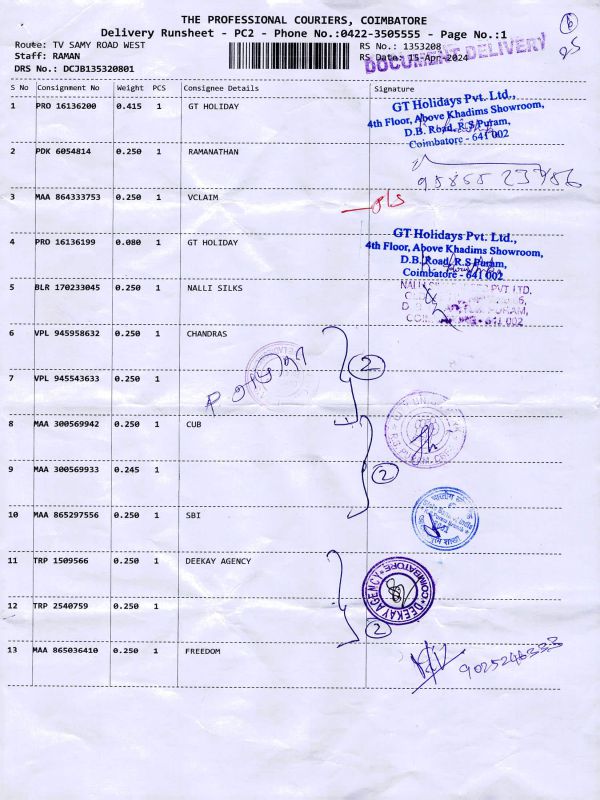 THE PROFESSIONAL COURIERS, COIMBATORE
Delivery Runsheet - PC2 - Phone No.:0422-3505555 - Page No.:1
Route: TV SAMY ROAD WEST
RS No.: 1353208
Staff: RAMAN
RS Date: 15-Apr-2024
DOCUMENT DELIVERY
DRS No.: DCJB135320801
S No Consignment No Weight PCS Consignee Details Signature
1 PRO 16136200 0.415 1 GT HOLIDAY
GT Holidays Pvt. Ltd.,
4th Floor, Above Khadims Showroom,
D.B. Road, R.S Puram,
Coimbatore - 641 002
2 PDK 6054814 0.250 1 RAMANATHAN
3 MAA 864333753 0.250 1 VCLAIM
4 PRO 16136199 0.080 1 GT HOLIDAY
GT Holidays Pvt. Ltd.,
4th Floor, Above Khadims Showroom,
D.B. Road, R.S Puram,
Coimbatore - 641 002
5 BLR 170233045 0.250 1 NALLI SILKS
6 VPL 945958632 0.250 1 CHANDRAS
2
7 VPL 945543633 0.250 1
8 MAA 300569942 0.250 1 CUB
9 MAA 300569933 0.245 1
2
10 MAA 865297556 0.250 1 SBI
11 TRP 1509566 0.250 1 DEEKAY AGENCY
DEEKAY AGENCY COIMBATORE
12 TRP 2540759 0.250 1
2
13 MAA 865036410 0.250 1 FREEDOM
9025246333